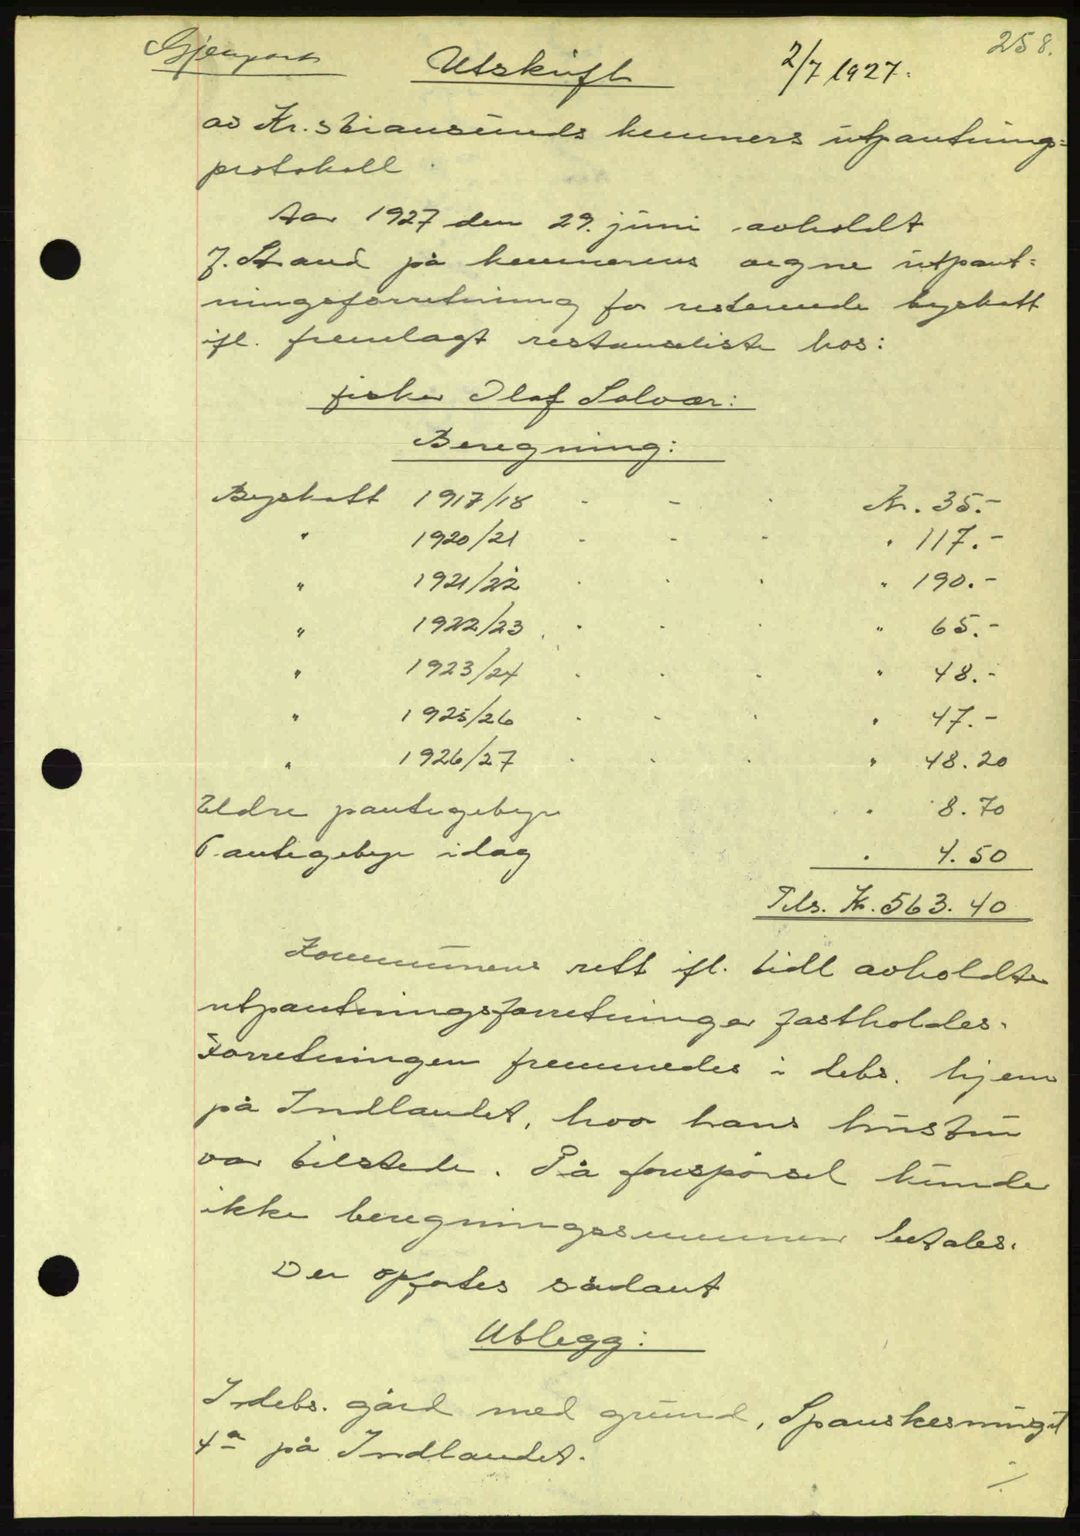 Gjenpart
Utskrift
2/7 1927.
258.
av Kr.stiansunds kemners utpantnings=
protokoll
Aar 1927 den 29. juni avholdt
J. Strand på kemnerens vegne utpant=
ningsforretning for resterende byskatt
ifl. fremlagt restanseliste hos:
fisker Olaf Solvær:
Beregning:
Byskatt 1917/18 - - - Kr. 35.-
" 1920/21 - - - " 117.-
" 1921/22 - - - " 190.-
" 1922/23 - - - " 65.-
" 1923/24 - - - " 48.-
" 1925/26 - - - " 47.-
" 1926/27 - - - " 48.20
Eldre pantegebyr " 8.70
Pantegebyr idag " 4.50
Tils. Kr. 563.40
Kommunens rett ifl. tidl avholdte
utpantningsforretninger fastholdes.
Forretningen fremmedes i debs. hjem
på Indlandet, hvor hans hustru
var tilstede. På forespørsel kunde
ikke beregningssummen betales.
Der opførtes sådant
Utlegg:
I debs. gård med grund, Spanskesmuget
4a på Indlandet.
./.